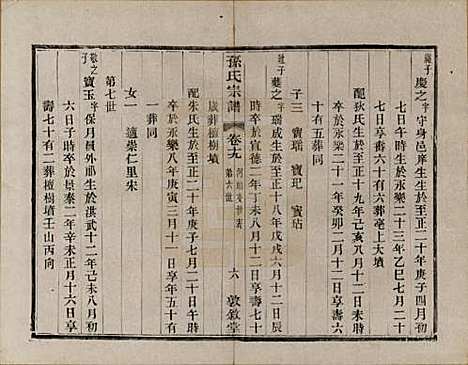 繼子
慶之字守身邑庠生生於至正二十年庚子四月初
七日午時卒於永樂二十三年乙巳七月二十
七日享壽六十有六葬亳上大墳
配狄氏生於至正十九年己亥八月十二日
卒於永樂二十一年癸卯二月二十日享壽六
十有五葬同
子三 寶瑞 寶玘 寶玷
之字瑞成生於至正十八年戊戌六月十二日辰
時卒於宣德二年丁未八月十二日享壽七十
歲葬檀樹墳
孫氏宗譜
卷十九
第六世
六
敦敘堂
配朱氏生於至正二十年庚子七月二十日午時
卒於永樂八年庚寅三月十一日享年五十有
一葬同
女一 適崇仁里宋
第七世
敬之子
寶玉字保月員外郎生於洪武十二年己未八月初
六日子時卒於景泰二年辛未正月十六日享
壽七十有二葬檀樹墳壬山丙向